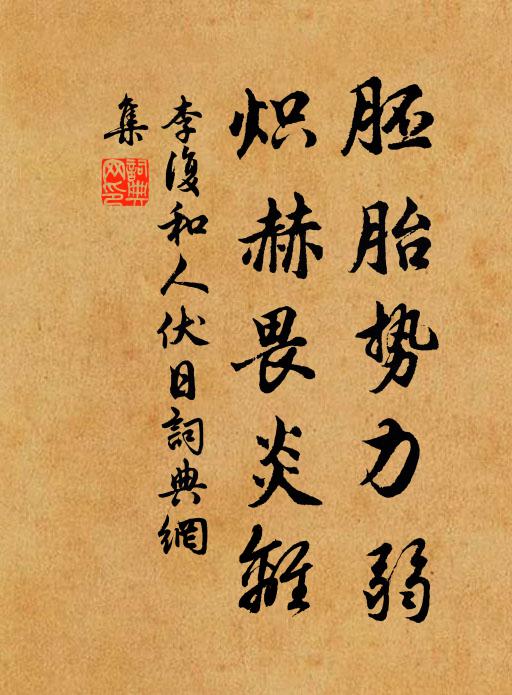 胚胎势力弱
炽赫畏炎離
李復和人伏日詞典網
集
詞典網印